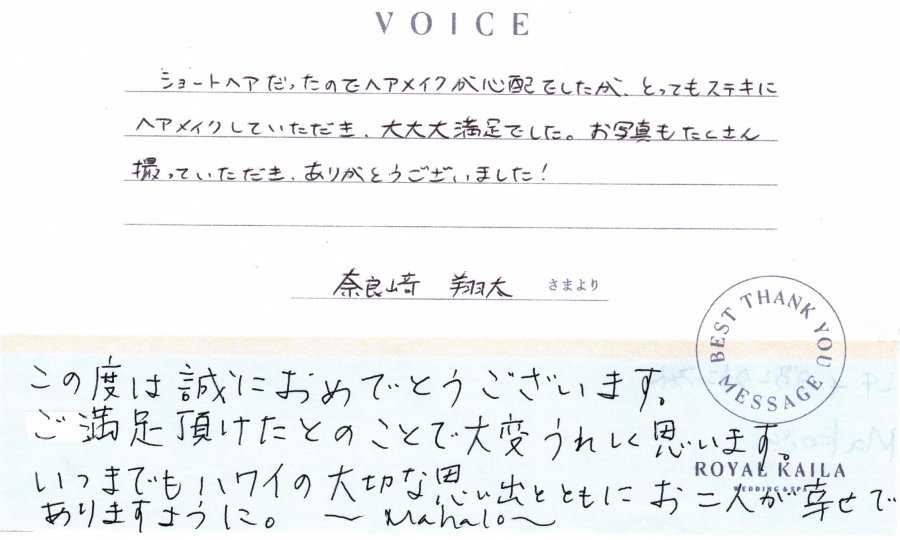 VOICE
ショートヘアだったのでヘアメイクが心配でしたが、とってもステキに
ヘアメイクしていただき、大大大満足でした。お写真もたくさん
撮っていただき、ありがとうございました！
奈良崎 翔太 さまより
BEST THANK YOU MESSAGE
この度は誠におめでとうございます。
ご満足頂けたとのことで大変うれしく思います。
ROYAL KAILA
WEDDING & SPA
いつまでもハワイの大切な思い出とともにお二人が幸せで
ありますように。 〜Mahalo〜